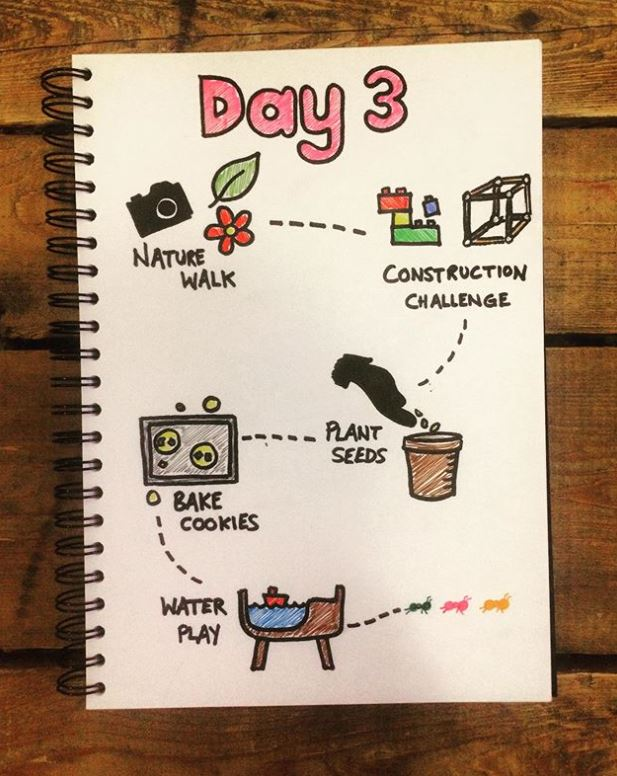 Day 3
NATURE
WALK
CONSTRUCTION
CHALLENGE
PLANT
SEEDS
BAKE
COOKIES
WATER
PLAY